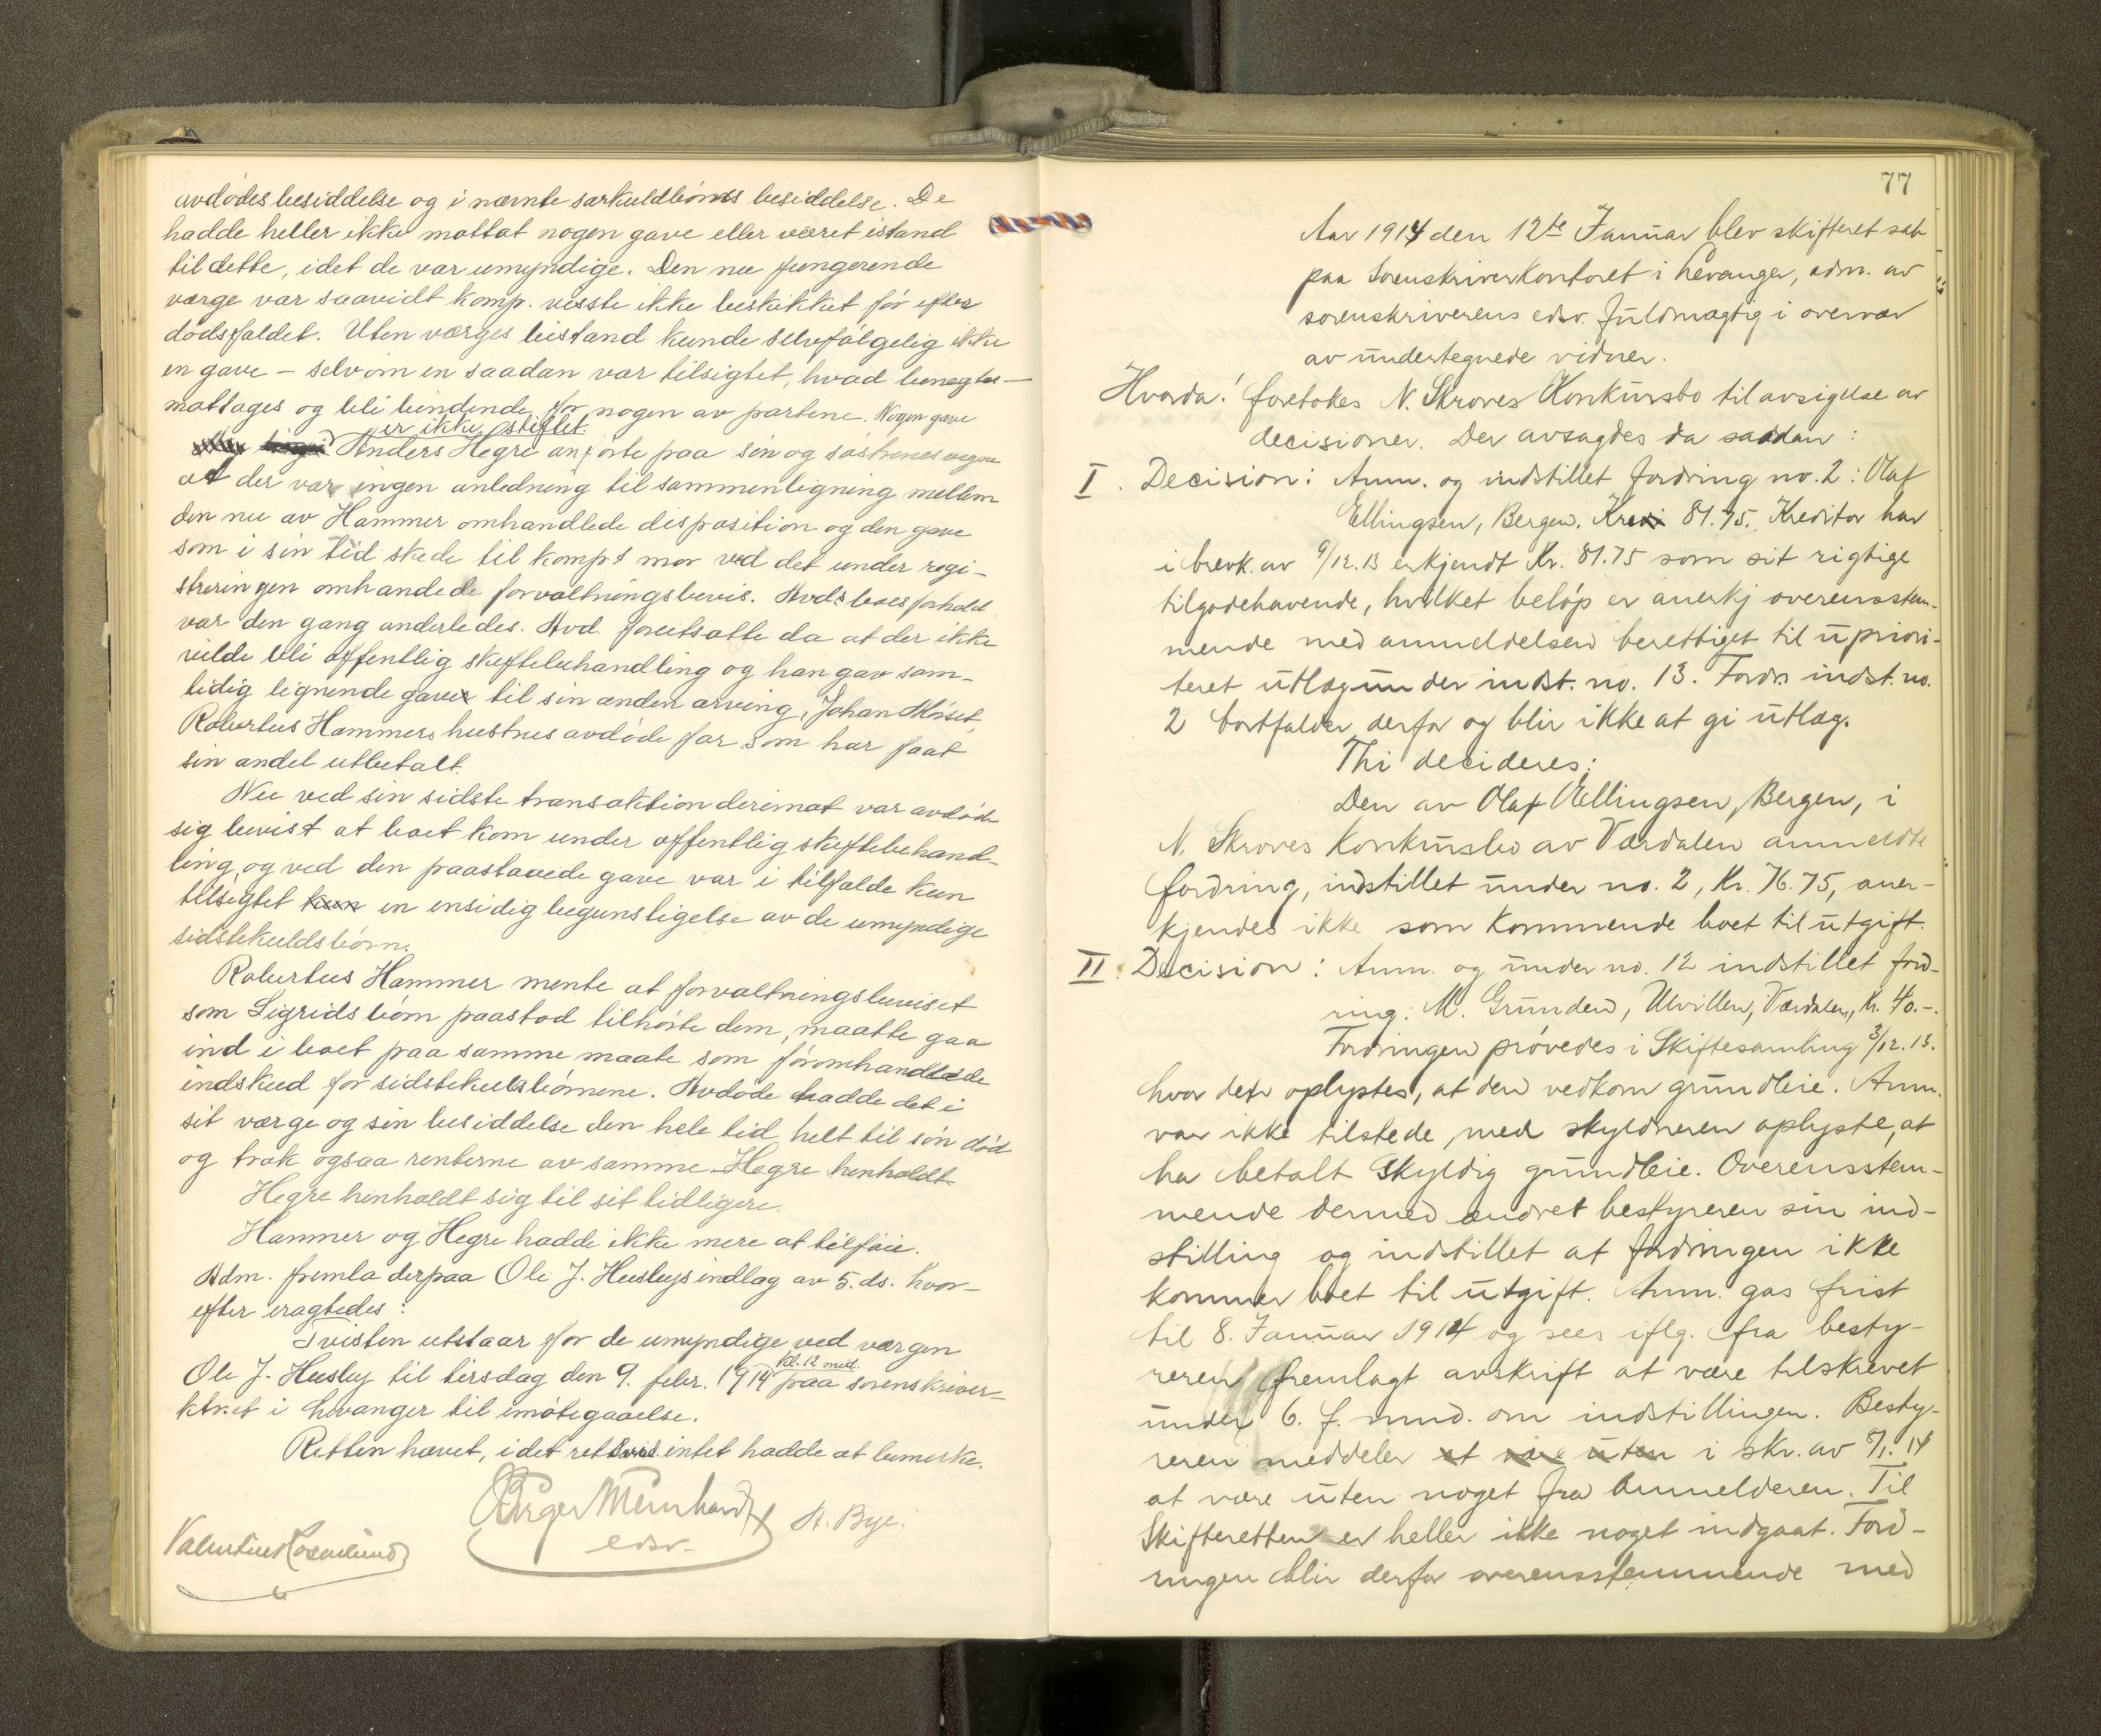 avdødes besiddelse og i nævnte særkuldbørns besiddelse. De
hadde heller ikke mottat nogen gave eller været istand
til dette, idet de var umyndige. Den nu fungerende
værge var saavidt komp. visste ikke beskikket før efter
dødsfaldet. Uten værges bistand kunde selvfølgelig ikke
en gave – selv om en saadan var tilsigtet, hvad benegtes –
mottages og bli bindende for nogen av partene. Nogen gave
er ikke stiftet.
Anders Hegre anførte paa sin og søstrenes vegne
at der var ingen anledning til sammenligning mellem
den nu av Hammer omhandlede disposition og den gave
som i sin tid skede til komps mor ved det under regi-
streringen omhandlede forvaltningsbevis. Avds boes forhold
var den gang anderledes. Avd. forutsatte da at der ikke
vilde bli offentlig skiftebehandling og han gav sam-
tidig lignende gaver til sin anden arving, Johan Moset,
Robertus Hammers hustrus avdøde far som har faat
sin andel utbetalt.
Nu ved sin sidste transaktion derimot var avdøde
sig bevist at boet kom under offentlig skiftebehand-
ling, og ved den paastaaede gave var i tilfælde kun
tilsigtet kun en ensidig begunstigelse av de umyndige
sidstekuldsbørn.
Robertus Hammer mente at forvaltningsbeviset
som Sigrids børn paastod tilhørte dem, maatte gaa
ind i boet paa samme maate som føromhandlede
indskud for sidstekulsbørnene. Avdøde hadde det i
sit værge og sin besiddelse den hele tid helt til sin død
og trak ogsaa renterne av samme. Hegre henholdt
Hegre henholdt sig til sit tidligere.
Hammer og Hegre hadde ikke mere at tilføie.
Adm. fremla derpaa Ole J. Husbys indlæg av 5. ds. hvor-
efter eragtedes:
Tvisten utstaar for de umyndige ved værgen
kl. 12 mid.
Ole J. Husby til tirsdag den 9. febr. 1914 paa sorenskriver-
ktret i Levanger til imøtegaaelse.
Retten hævet, idet retsvid. intet hadde at bemerke.
Birger Meinhardt St. Bye.
edsv.
Valentin Rosenlund
77
Aar 1914 den 12te Januar blev skifteret sat
paa Sorenskriverkontoret i Levanger, adm. av
sorenskriverens edsv. fuldmægtig i overvær
av undertegnede vidner.
Hvorda: foretokes N. Skroves Konkursbo til avsigelse av
decisioner. Der avsagdes da saadan:
I. Decision: Anm. og indstillet fordring no. 2: Olaf
Ellingsen, Bergen. Kr. 81.75. Kreditor har
i brevk. av 9/12.13 erkjendt Kr. 81.75 som sit rigtige
tilgodehavende, hvilket beløp er anerkj overensstem-
mende med anmeldelsen berettiget til upriori-
teret utlæg under indst. no. 13. Fordr. indst. no.
2 bortfalder derfor og blir ikke at gi utlæg.
Thi decideres:
Den av Olaf Ellingsen, Bergen, i
N. Skroves Konkursbo av Værdalen anmeldte
fordring, indstillet under no. 2, Kr. 76.75, aner-
kjendes ikke som kommende boet til utgift.
II. Decision: Anm. og under no. 12 indstillet ford-
ring: M. Grunden, Ulvillen, Værdalen, Kr. 40.-.
Fordringen prøvedes i Skiftesamling 3/12.13.
hvor det oplystes, at den vedkom grundleie. Anm.
var ikke tilstede, med skyldneren oplyste, at
ha betalt skyldig grundleie. Overensstem-
mende dermed ændret bestyreren sin ind-
stilling og indstillet at fordringen ikke
kommer boet til utgift. Anm. gas frist
til 8. Januar 1914 og sees iflg. fra besty-
reren fremlagt avskrift at være tilskrevet
under 6. f. mnd. om indstillingen. Besty-
reren meddeler at være uten i skr. av 8/1. 14
at være uten noget fra Anmelderen. Til
Skifteretten er heller ikke noget indgaat. Ford-
ringen blir derfor overensstemmende med